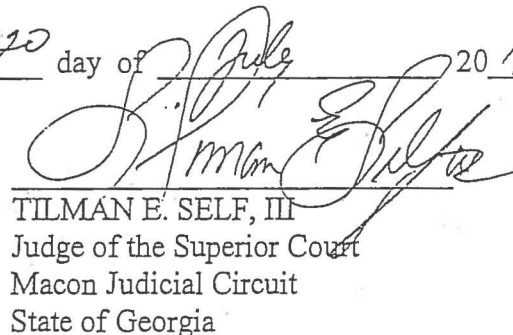 20 day of July 20
Tilman E Self III
TILMAN E. SELF, III
Judge of the Superior Court
Macon Judicial Circuit
State of Georgia